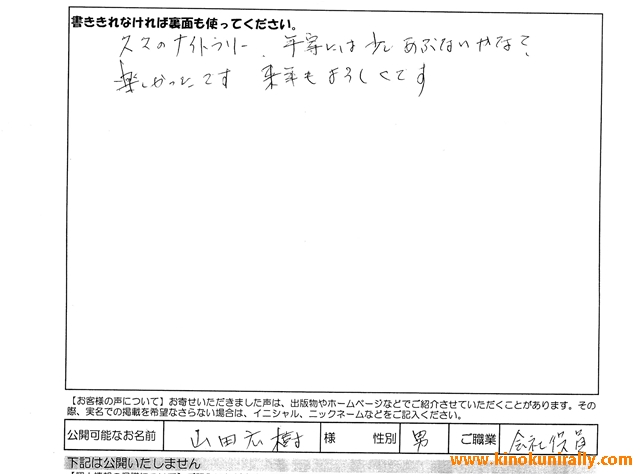 書ききれなければ裏面も使ってください。
久々のナイトラリー、年寄には少しあぶないやな?
楽しかったです 来年もよろしくです
【お客様の声について】お寄せいただきました声は、出版物やホームページなどでご紹介させていただくことがあります。その
際、実名での掲載を希望なさらない場合は、イニシャル、ニックネームなどをご記入ください。
公開可能なお名前 山田広樹 様 性別 男 ご職業 会社役員
下記は公開いたしません
www.kinokunirally.com